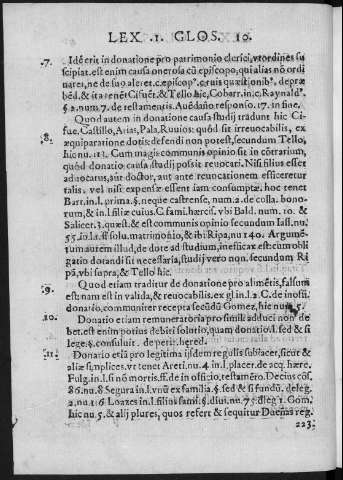 LEX .1. GLOS. 10.
.7. Idē erit in donatione pro patrimonio clerici, vt ordines su
scipiat. est enim causa onerosa cū episcopo, qui alias nō ordi
naret, ne de suo aleret. c. episcop⁹. c. cuis quæstionib⁹. de præ
bēd. & ita tenēt Cifuēt. & Tello hic, Cobarr. in, c, Raynald⁹.
§ 2. num. 7. de testamentis. Auēdaño responso. 17. in fine.
Quod autem in donatione causa studij tradunt hic Ci-
.8. fue. Castillo, Arias, Pala, Ruuios: quòd sit irreuocabilis, ex
æquiparatione dotis: defendi non potest, secundum Tello,
hic nu. 113. Cum magis communis opinio sit in cōtrarium,
quòd donatio causa studij possit reuocari. Nisi filius esset
aduocatus, aut doctor, aut ante reuocationem efficeretur
talis. vel nisi expensæ essent iam consumptæ. hoc tenet
Bart. in l. prima. §. neque castrense, num. 2. de colla. bono-
rum, & in l. filiæ cuius. C. fami. hærcis. vbi Bald. num. 10. &
Salicet. 3. quæst. & est communis opinio secundum Iass. nu.
55. in l. 1. ff. solu. matrimonio, & ibi Ripa, nu 140. Argumē-
tum autem illud, de dote ad studium, inefficax est: cum obli
gatio dotandi sit necessaria, studij vero non. secundum Ri
pā, vbi supra, & Tello hic.
.9. Quod etiam traditur de donatione pro alimētis, falsum
est: nam est in valida, & reuocabilis. ex gl. in l. 2. C. de inoffi.
donatio. communiter recepta secūdū Gomez, hic nu. 5.
10. Donatio etiam remuneratoria pro simili adduci non de
bet. est enim potius debiti solutio, quam donatio. l. sed & si
lege. §. consuluit. de petit. hered.
.11. Donatio etiā pro legitima ijsdem regulis subiacet, sicut &
aliæ simplices. vt tenet Areti. nu. 4. in l. placet. de acq. hære.
Fulg. in l. si nō mortis. ff. de in officio, testamēro. Decius cōs.
86. nu. 8 Segura in l. vnū ex familia. §. sed & si fundū. deleg.
2. nu. 16 Loazes in l. filius fami. §. diui. nu. 75. d leg 1. Gom.
hic nu. 5. & alij plures, quos refert & sequitur Dueñas reg.
223.